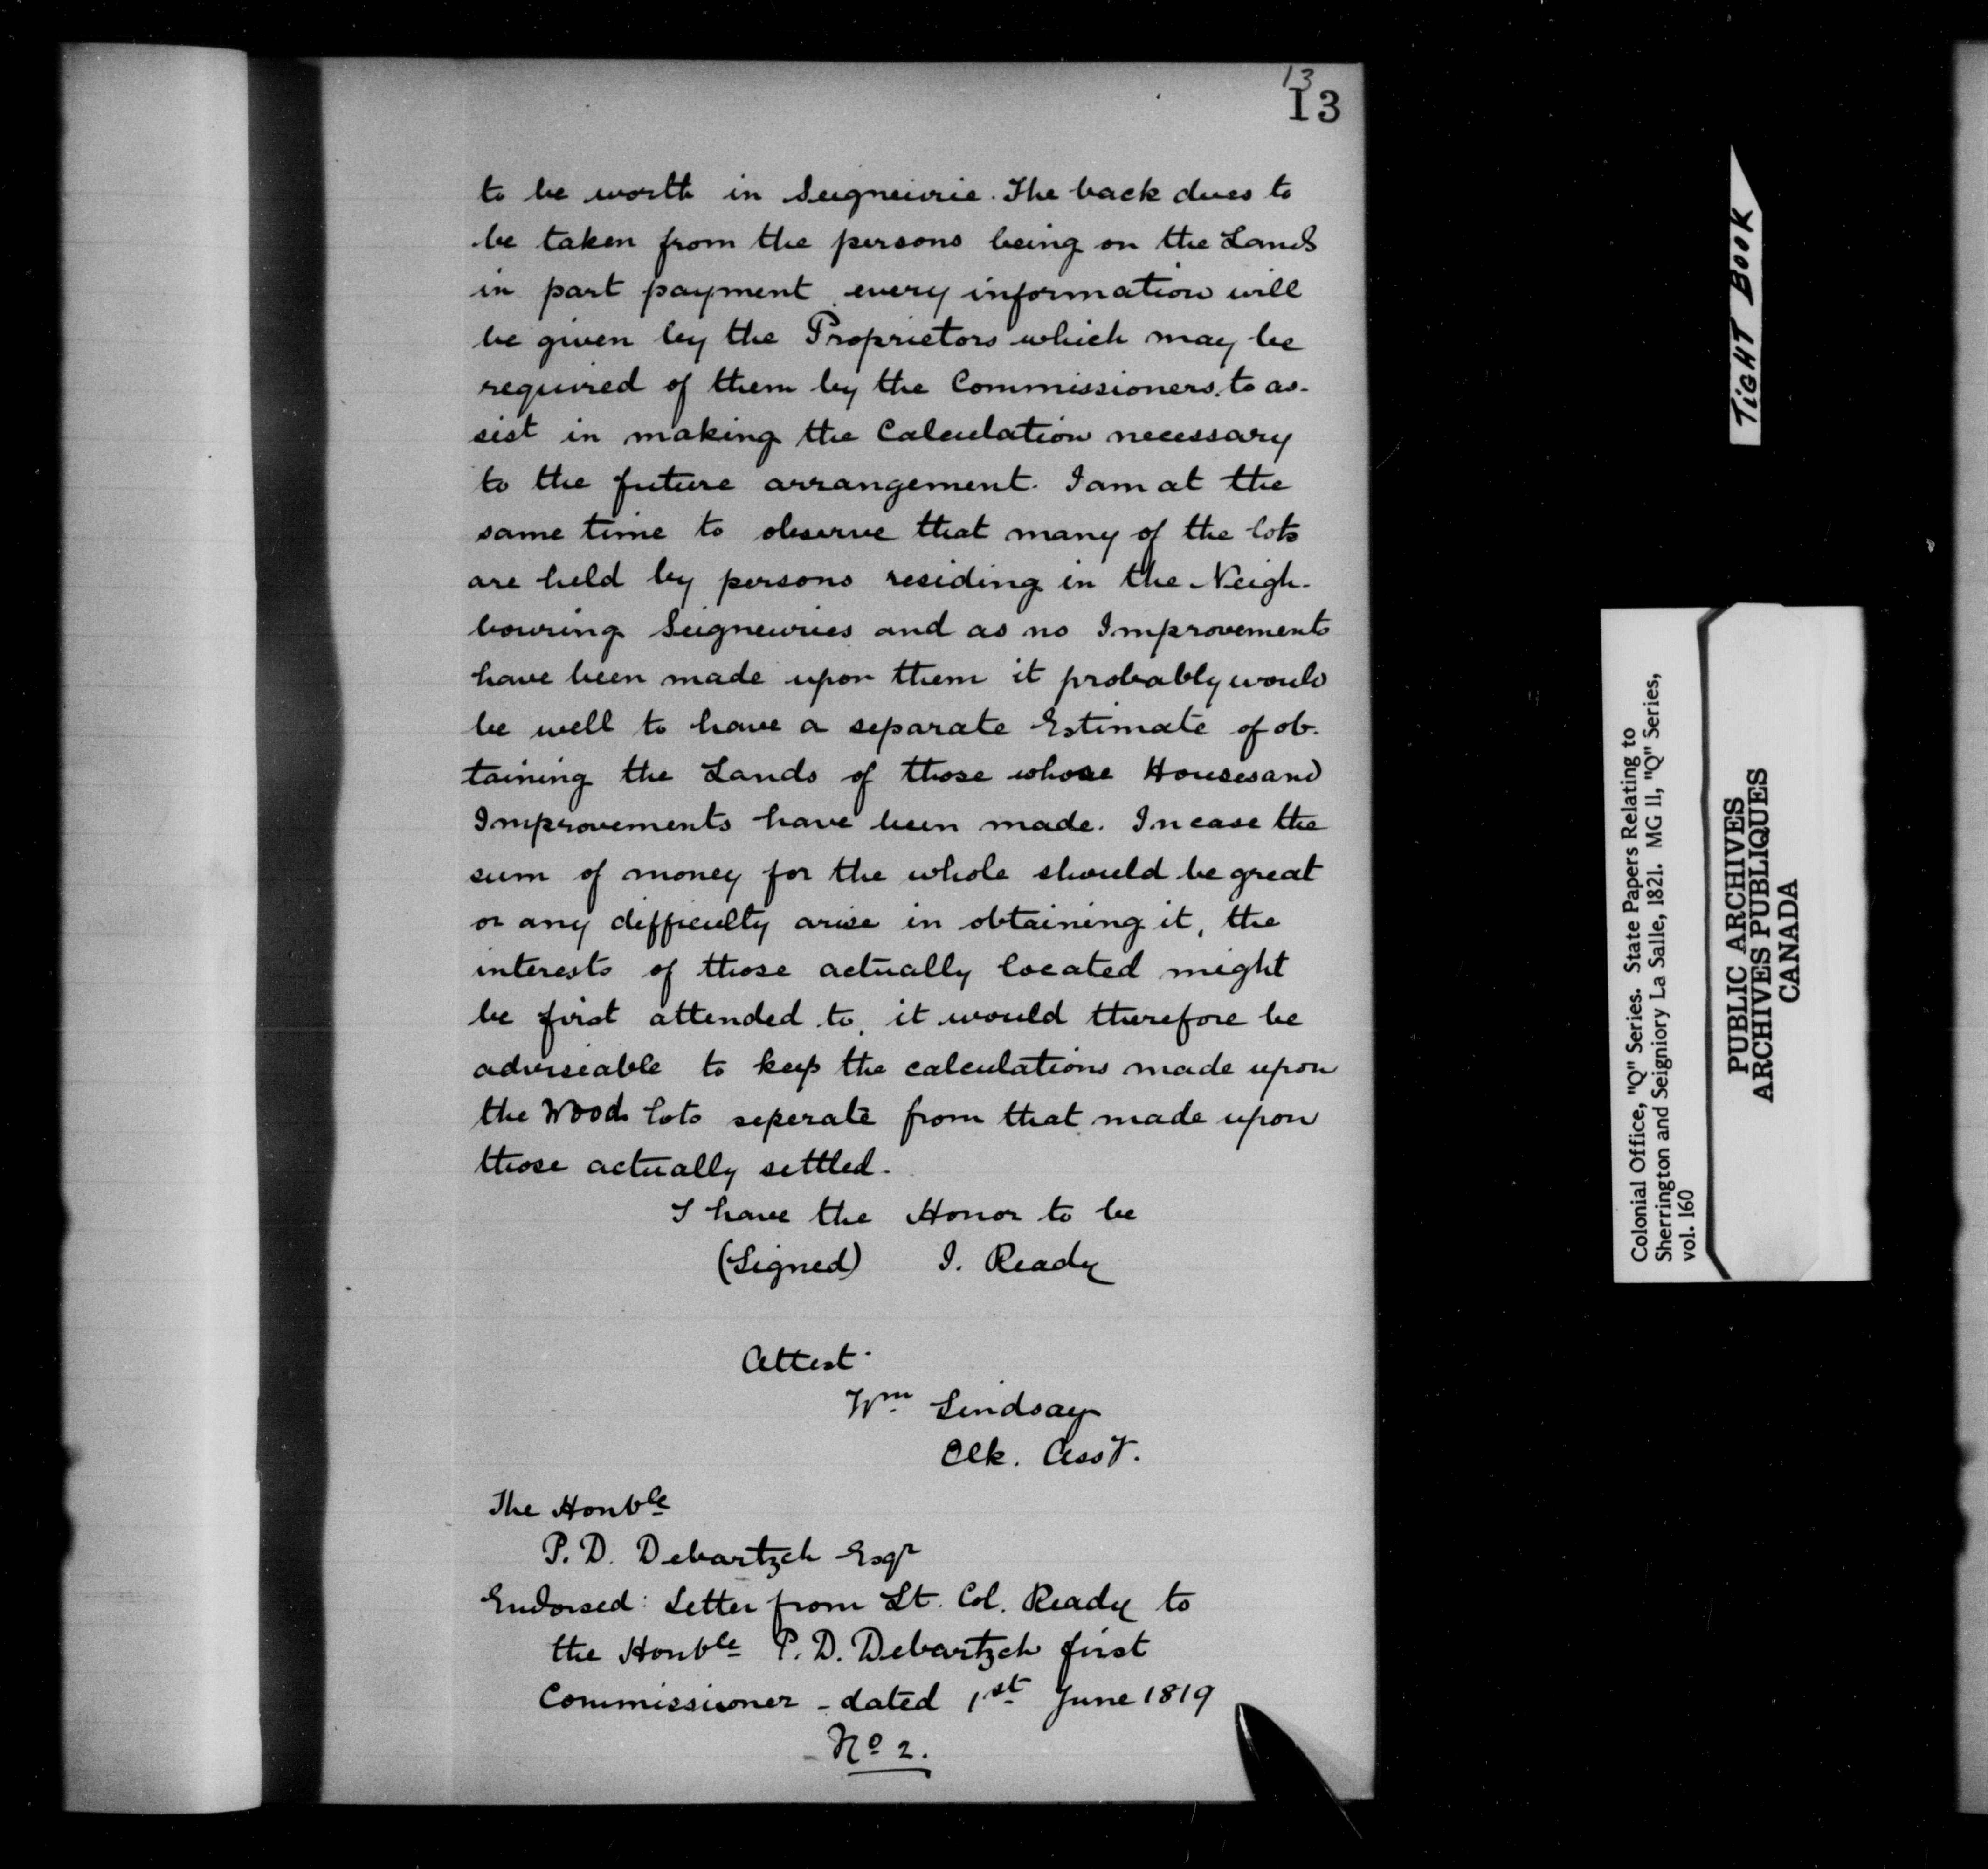 13
13
to be worth in Seigneurie. The back dues to
be taken from the persons being on the Lands
in part payment every information will
be given by the Proprietors which may be
required of them by the Commissioners, to as-
sist in making the Calculation necessary
to the future arrangement. I am at the
same time to observe that many of the lots
are held by persons residing in the Neigh-
bouring Seigneuries and as no Improvements
have been made upon them it probably would
be well to have a separate Estimate of ob-
taining the Lands of those whose Houses and
Improvements have been made. In case the
sum of money for the whole should be great
or any difficulty arise in obtaining it, the
interests of those actually located might
be first attended to, it would therefore be
adviseable to keep the calculations made upon
the Woods lots seperate from that made upon
those actually settled.
I have the Honor to be
(Signed) I. Ready
Attest.
Wm Lindsay
Clk. Asst.
The Honble
P. D. Debartzch Esqr
Endorsed: Letter from Lt. Col. Ready to
the Honble P. D. Debartzch first
Commissioner - dated 1st June 1819
No 2.
TIGHT BOOK
Colonial Office, "Q" Series. State Papers Relating to
Sherrington and Seigniory La Salle, 1821. MG 11, "Q" Series,
vol. 160
PUBLIC ARCHIVES
ARCHIVES PUBLIQUES
CANADA